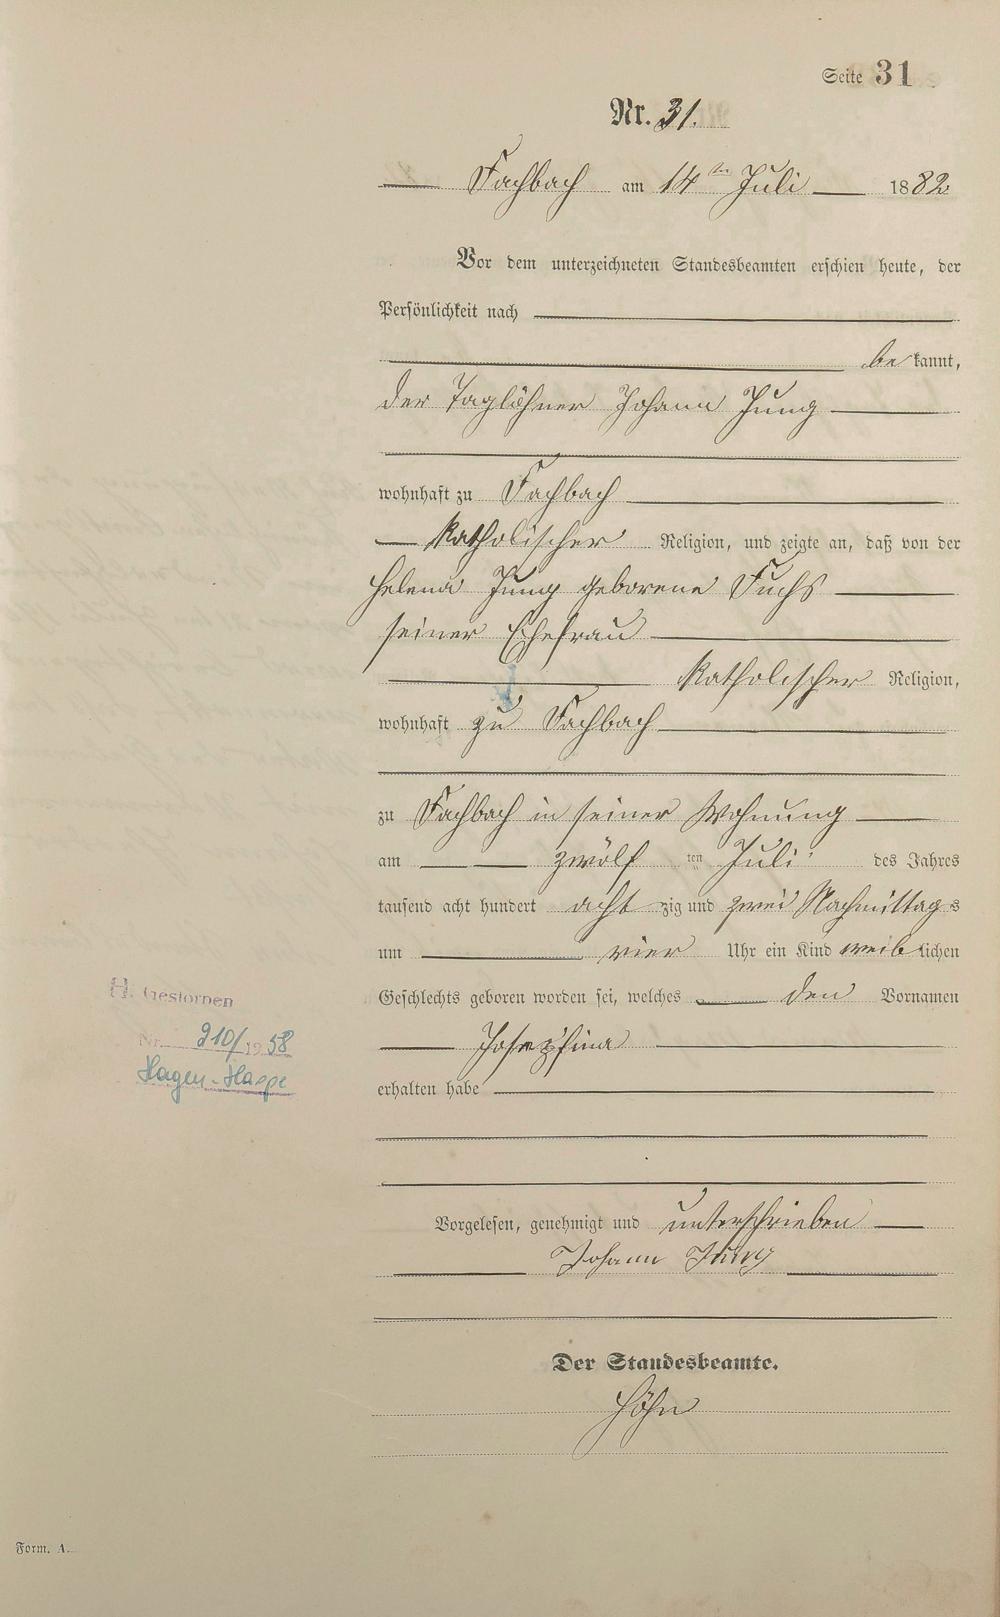 Seite 31
Nr. 31.
Fachbach am 14ten Juli 1882
Vor dem unterzeichneten Standesbeamten erschien heute, der
Persönlichkeit nach
be kannt,
der Taglöhner Johann Jung
wohnhaft zu Fachbach
katholischer Religion, und zeigte an, daß von der
Helena Jung geborene Fuchs
seiner Ehefrau
katholischer Religion,
wohnhaft zu Fachbach
zu Fachbach in seiner Wohnung
am zwölf ten Juli des Jahres
tausend acht hundert acht zig und zwei Nachmittags
um vier Uhr ein Kind weiblichen
Geschlechts geboren worden sei, welches den Vornamen
Josephina
erhalten habe
H. Gestorben
Nr. 210/1958
Hagen-Haspe
Vorgelesen, genehmigt und unterschrieben
Johann Jung
Der Standesbeamte.
Höhn
Form. A.